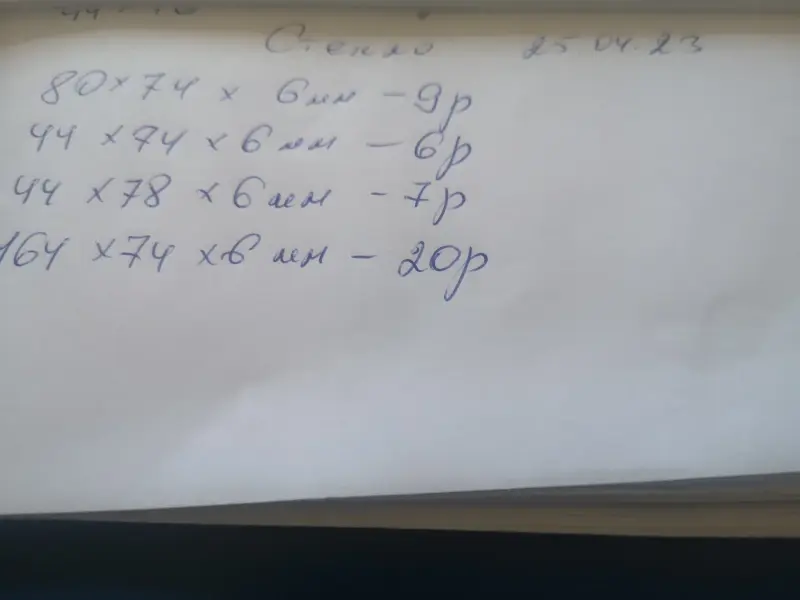 Стекло 25.04.23
80 × 74 × 6 мм – 9р
44 × 74 × 6 мм – 6р
44 × 78 × 6 мм – 7р
164 × 74 × 6 мм – 20р